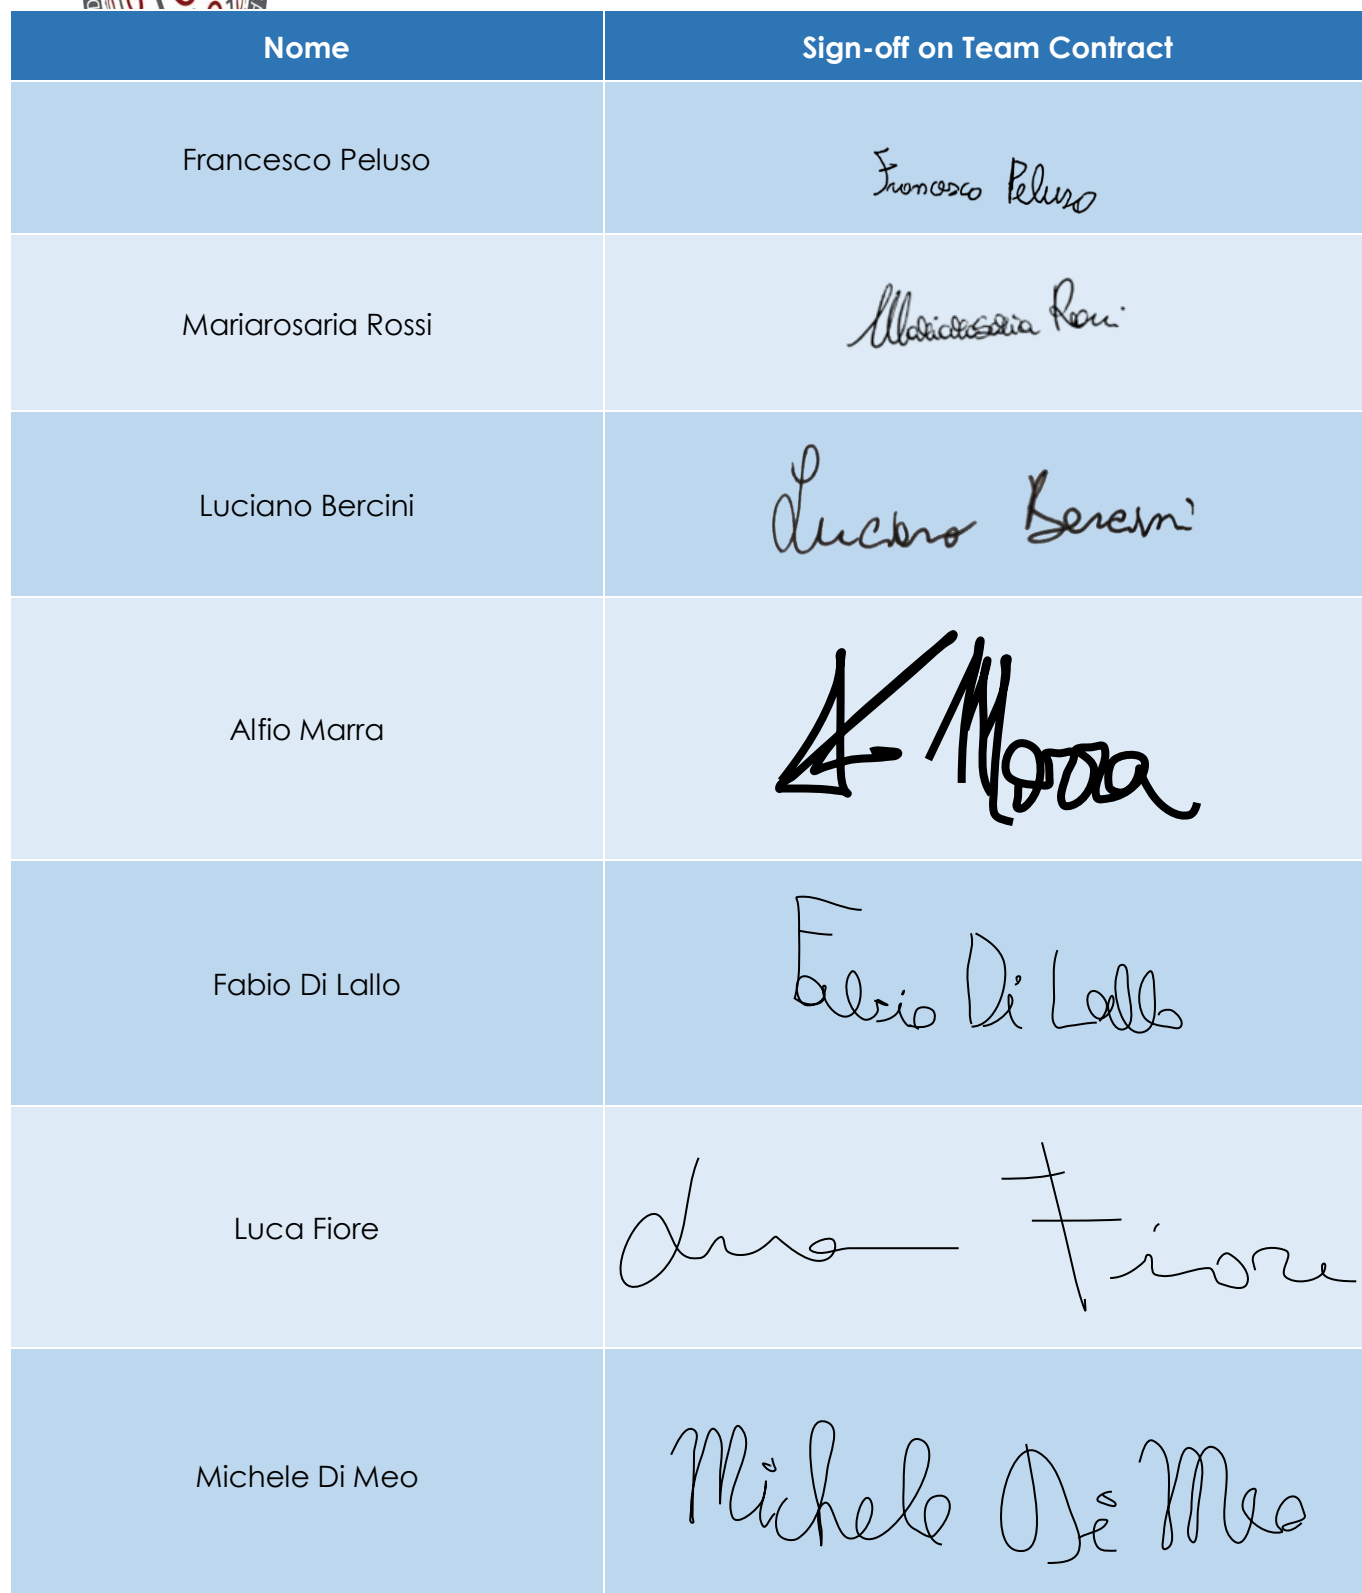 Nome Sign-off on Team Contract
Francesco Peluso Francesco Peluso
Mariarosaria Rossi Mariarosaria Rossi
Luciano Bercini Luciano Bercini
Alfio Marra A. Marra
Fabio Di Lallo Fabio Di Lallo
Luca Fiore Luca Fiore
Michele Di Meo Michele Di Meo